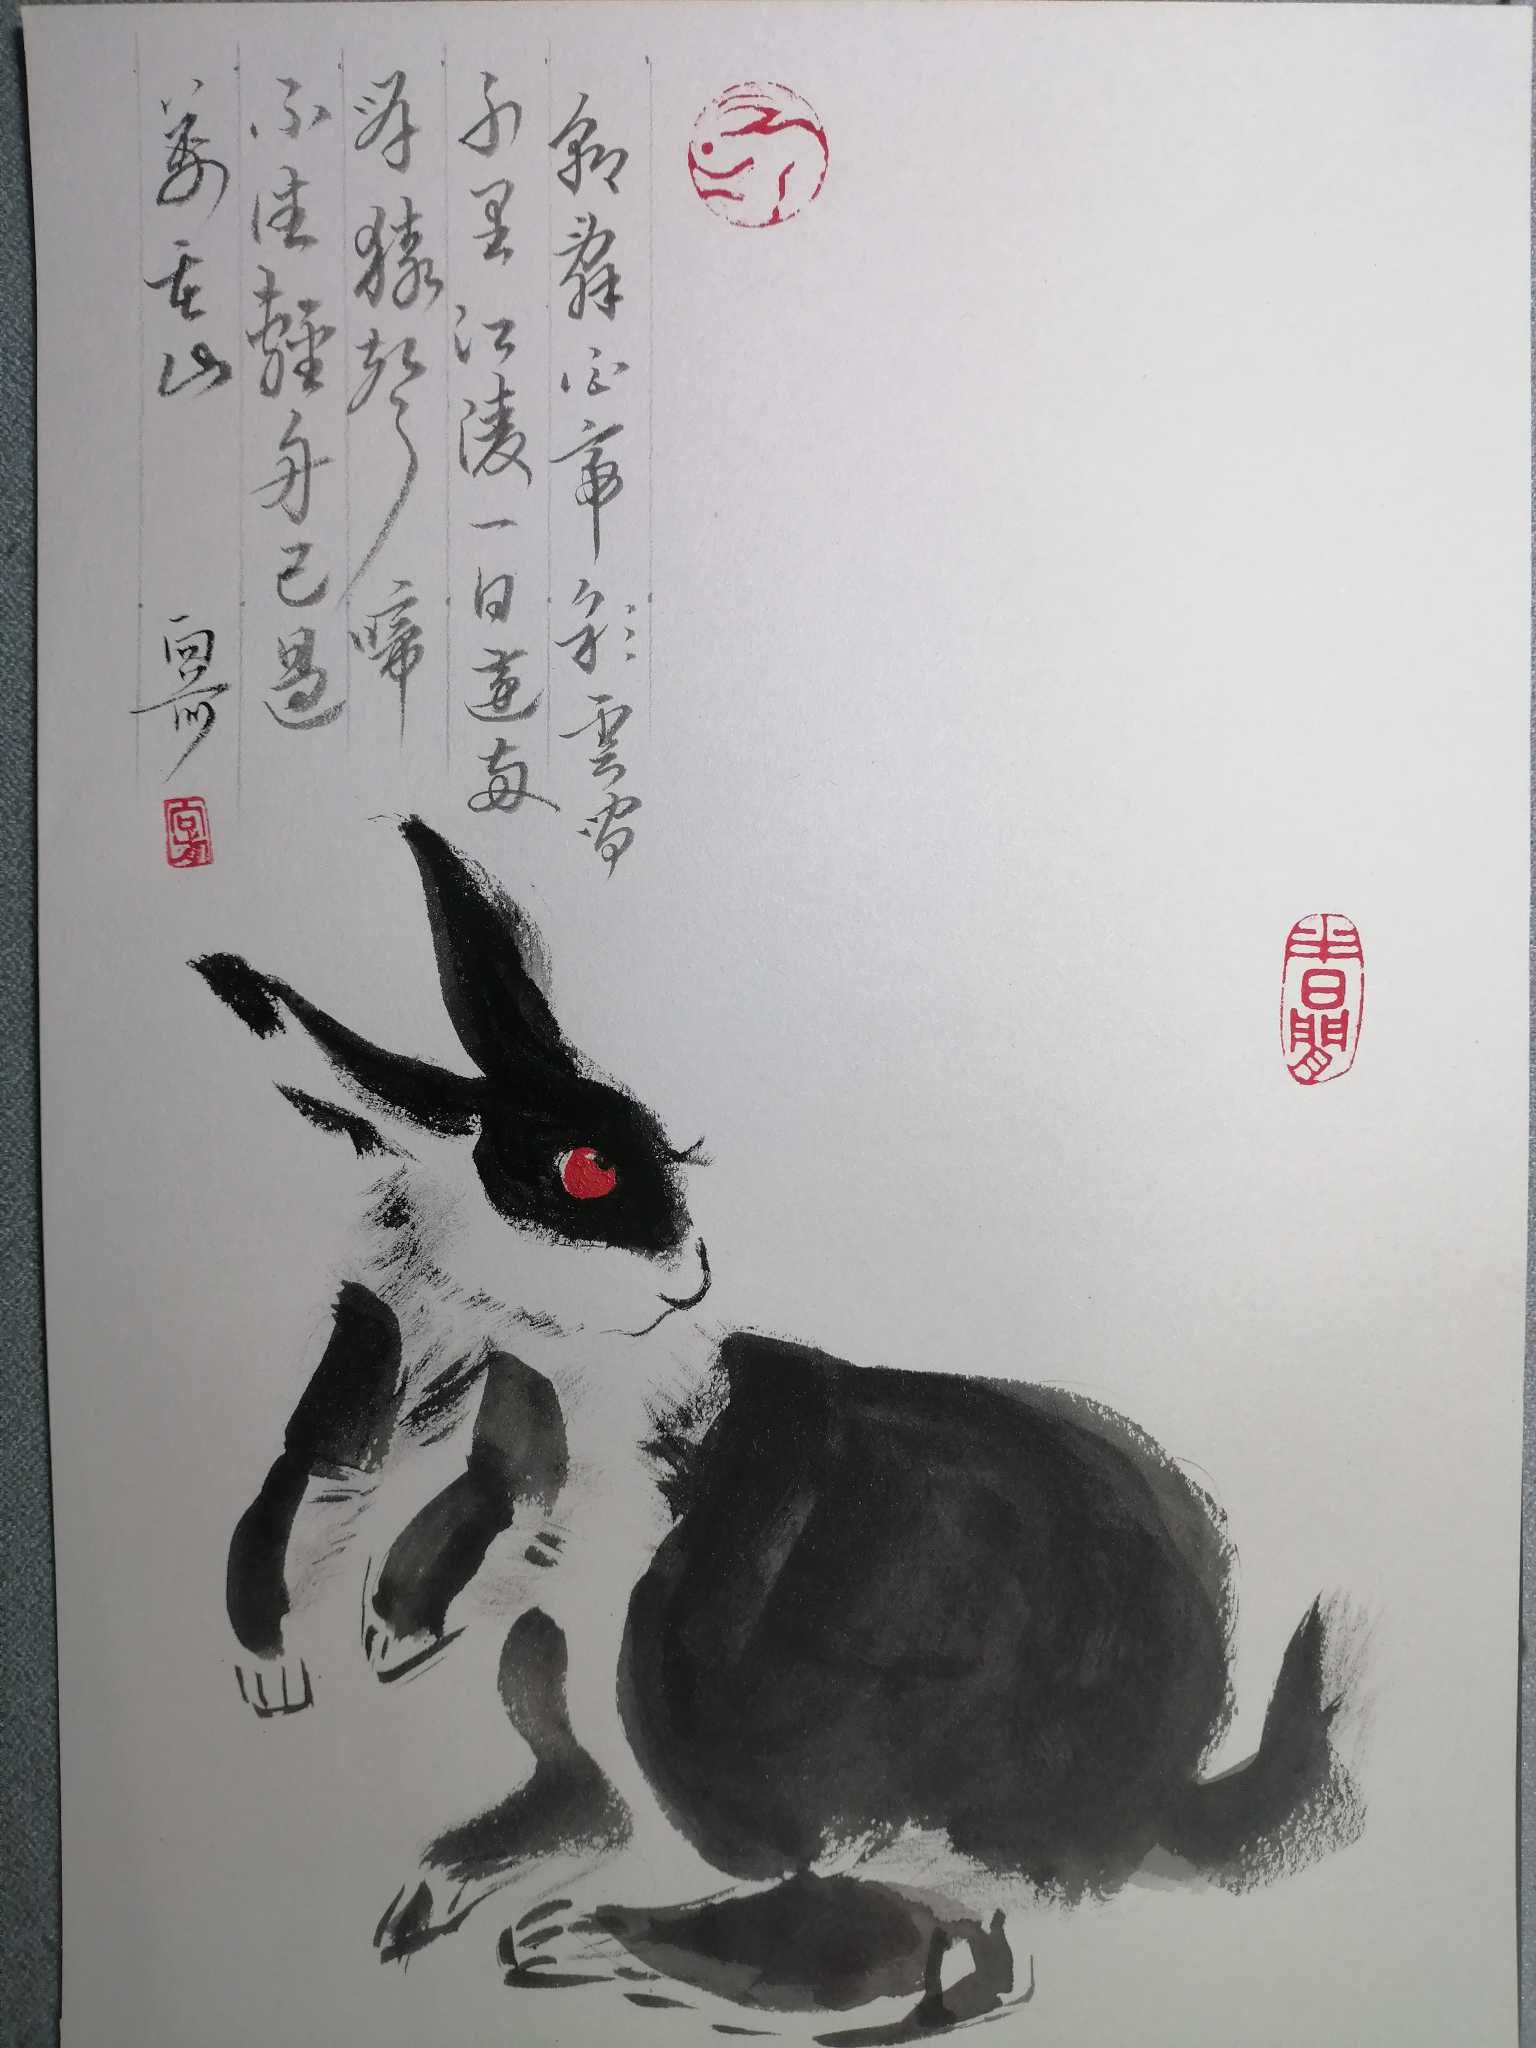 朝辭白帝彩雲間
千里江陵一日還兩
岸猿聲啼
不住輕舟已過
萬重山
半日閒